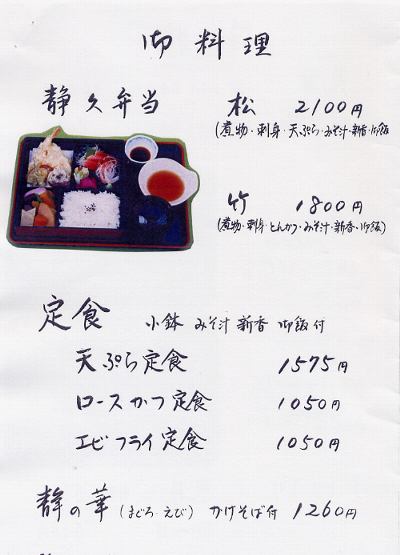 御料理
静久弁当
松 2100円
(煮物・刺身・天ぷら・みそ汁・新香・御飯
竹 1800円
(煮物・刺身・とんかつ・みそ汁・新香・御飯)
定食 小鉢 みそ汁 新香 御飯付
天ぷら定食 1575円
ロースかつ定食 1050円
エビフライ定食 1050円
静の華(まぐろ・えび) かけそば付 1260円